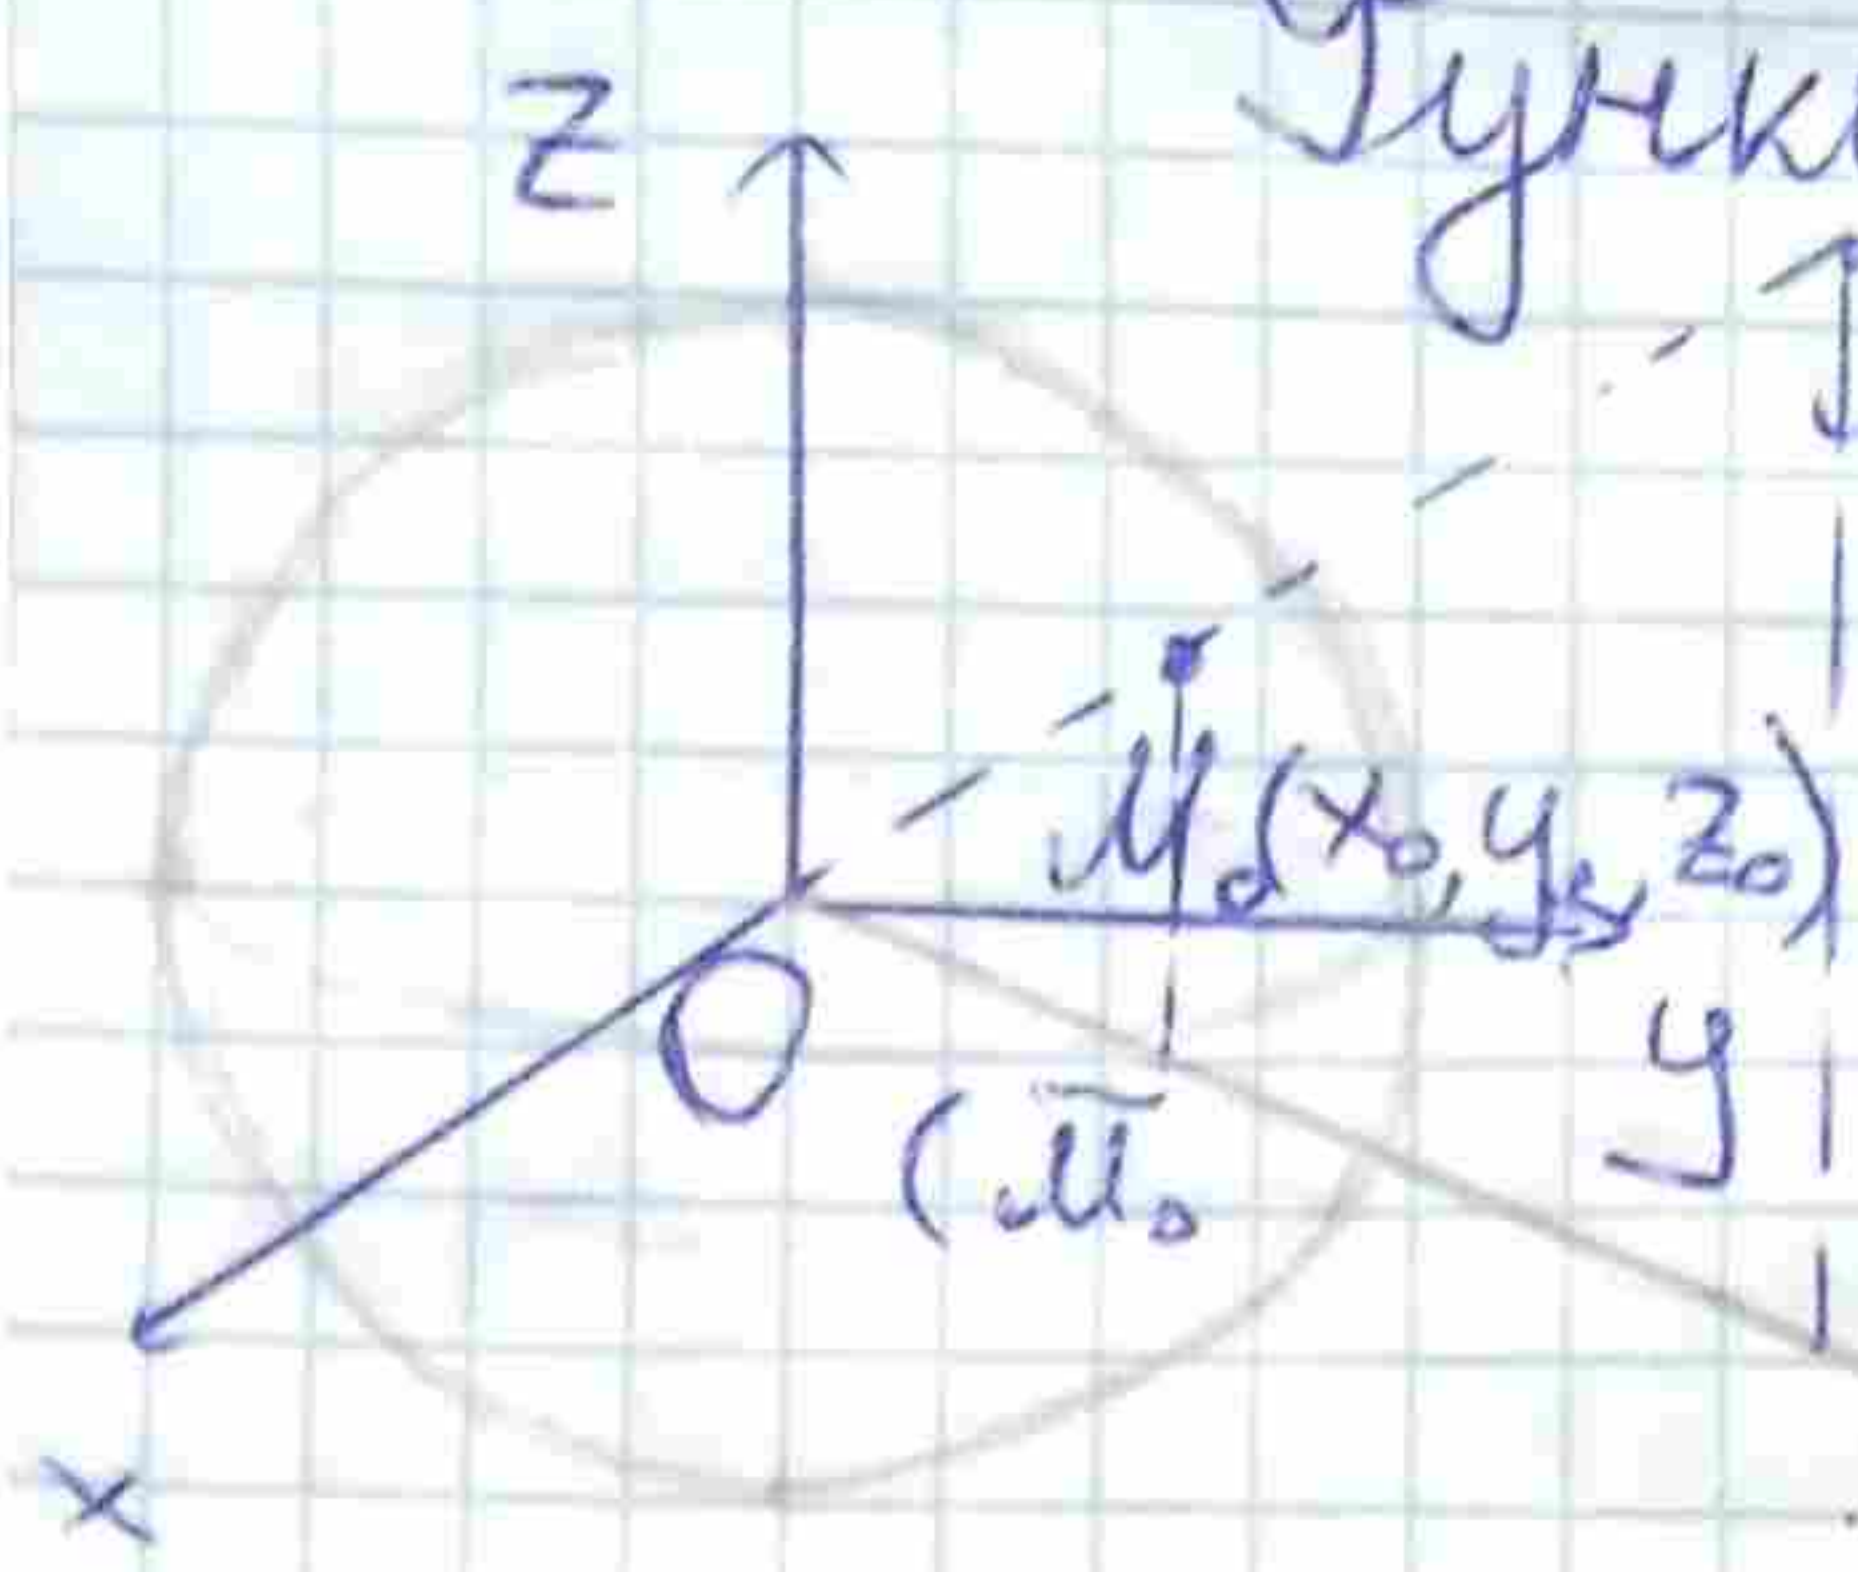 Функ
z
M₀(x₀, y₀, z₀)
O
y
(M̄₀
x